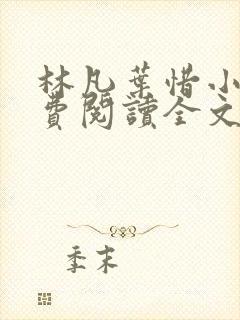 林凡葉惜小
費閱讀全文
季末